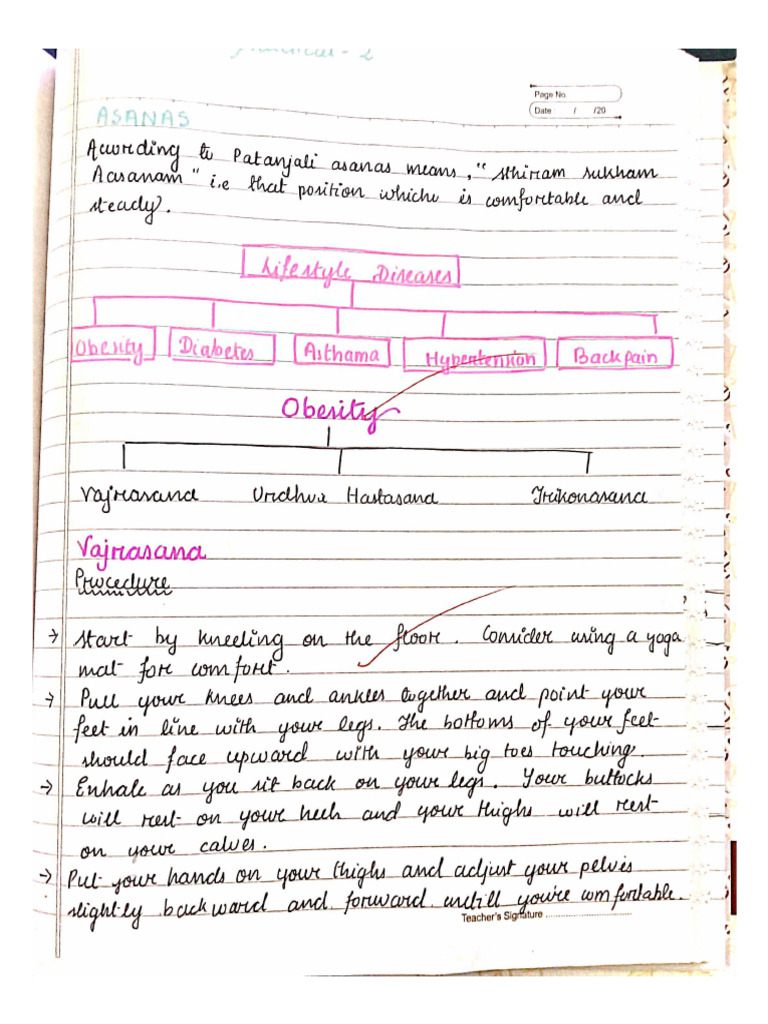 Practical - 2
Page No.
Date / /20
ASANAS
According to Patanjali asanas means, "sthiram sukham
Aasanam" i.e that position which is comfortable and
steady.
Lifestyle Diseases
Obesity Diabetes Asthama Hypertension Backpain
Obesity
Vajrasana Urdhva Hastasana Trikonasana
Vajrasana
Procedure
→ Start by kneeling on the floor. Consider using a yoga
mat for comfort.
→ Pull your knees and ankles together and point your
feet in line with your legs. The bottoms of your feet
should face upward with your big toes touching.
→ Enhale as you sit back on your legs. Your buttocks
will rest on your heels and your thighs will rest
on your calves.
→ Put your hands on your thighs and adjust your pelvis
slightly backward and forward untill you're comfortable.
Teacher's Signature